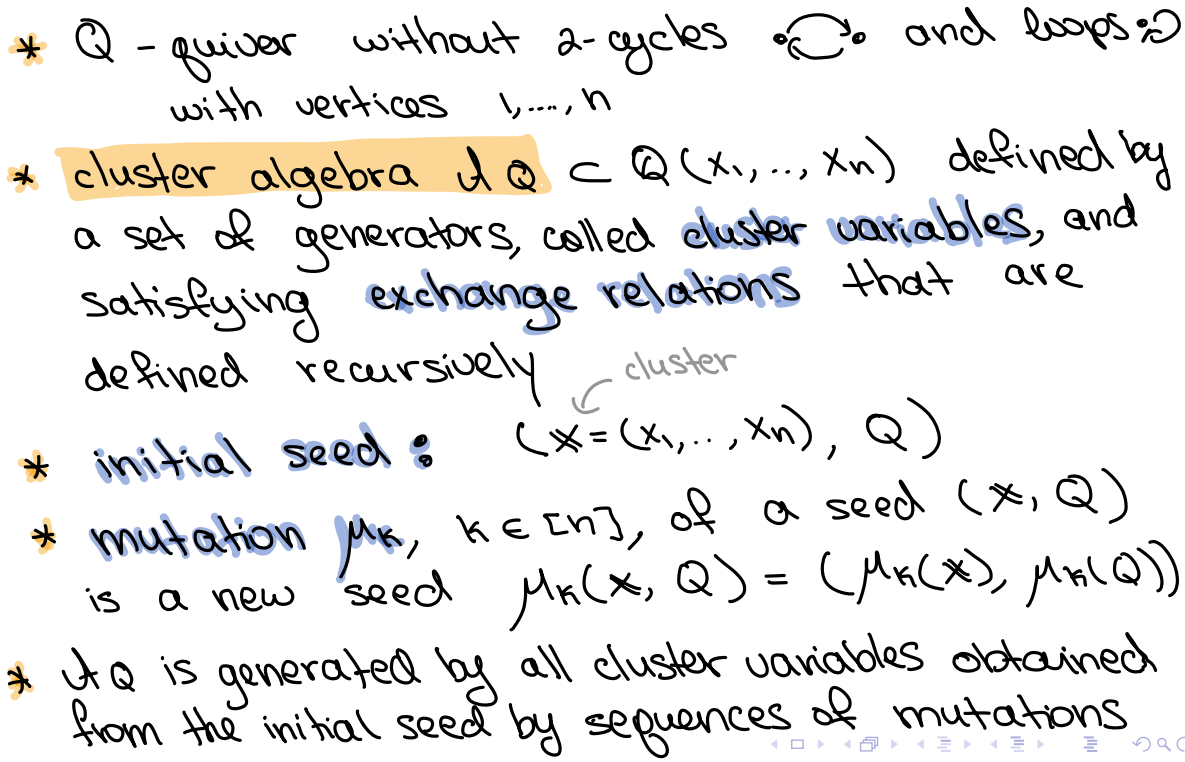 * Q - quiver without 2-cycles and loops
with vertices 1,...., n
* cluster algebra 𝒜Q ⊂ ℚ(x₁,..,xₙ) defined by
a set of generators, called cluster variables, and
satisfying exchange relations that are
defined recursively
cluster
* initial seed: (𝕩=(x₁,..,xₙ), Q)
* mutation μₖ, k ∈ [n], of a seed (𝕩, Q)
is a new seed μₖ(𝕩, Q) = (μₖ(𝕩), μₖ(Q))
* 𝒜Q is generated by all cluster variables obtained
from the initial seed by sequences of mutations